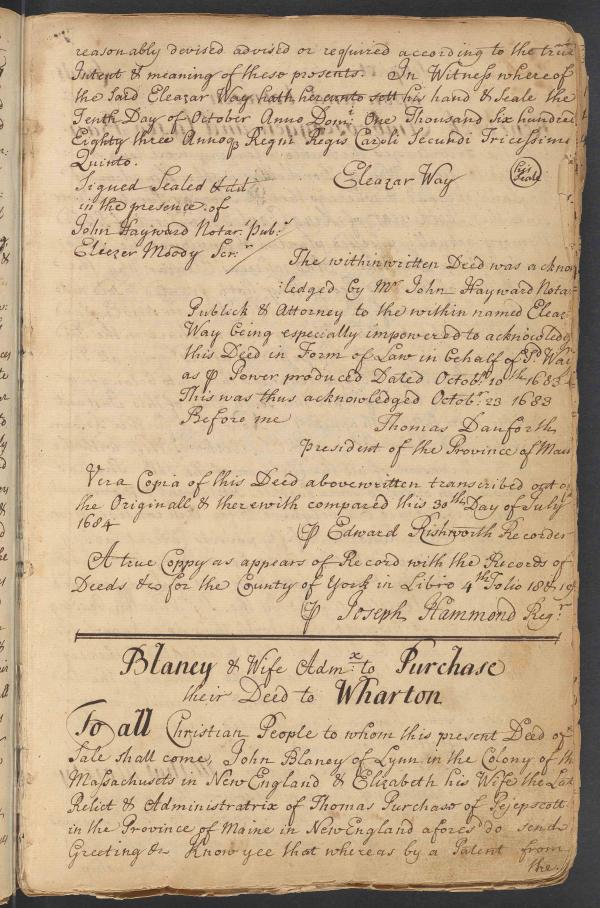 reasonably devised advised or required according to the true
Intent & meaning of these presents. In Witness whereof
the said Eleazar Way hath hereunto sett his hand & Seale the
Tenth Day of October Anno Dom.i One Thousand Six hundred
Eighty three Annoq Regni Regis Caroli Secundi Tricessimo
Quinto.
Signed Sealed & dd
Eleazar Way
his Seale
in the presence of
John Hayward Notar.s Pub.s
Eliezer Moody Ser.r
The withinwritten Deed was acknow
:ledged by Mr John Hayward Nota:
Publick & Attorney to the within named Eleaz
Way being especially impowered to acknowledg
this Deed in Form of Law in behalf of Sd Way
as ꝑ Power produced Dated Octob.r 10th 1683
This was thus acknowledged Octob.r 23 1683
Before me Thomas Danforth
President of the Province of Main
Vera Copia of this Deed abovewritten transcribed out of
the Originall & therewith compared this 30th Day of July
1684 ꝑ Edward Rishworth Recorder
A true Coppy as appears of Record with the Records of
Deeds &c for the County of York in Libro 4th Folio 18
ꝑ Joseph Hammond Reg.r
Blaney & Wife Adm.x to Purchase
their Deed to Wharton
To all Christian People to whom this present Deed of
Sale shall come, John Blaney of Lynn in the Colony of the
Massachusets in New England & Elizabeth his Wife the Late
Relict & Administratrix of Thomas Purchase of Pejepscott
in the Province of Maine in New England afores.d do send
Greeting &c Know yee that whereas by a Patent from
the